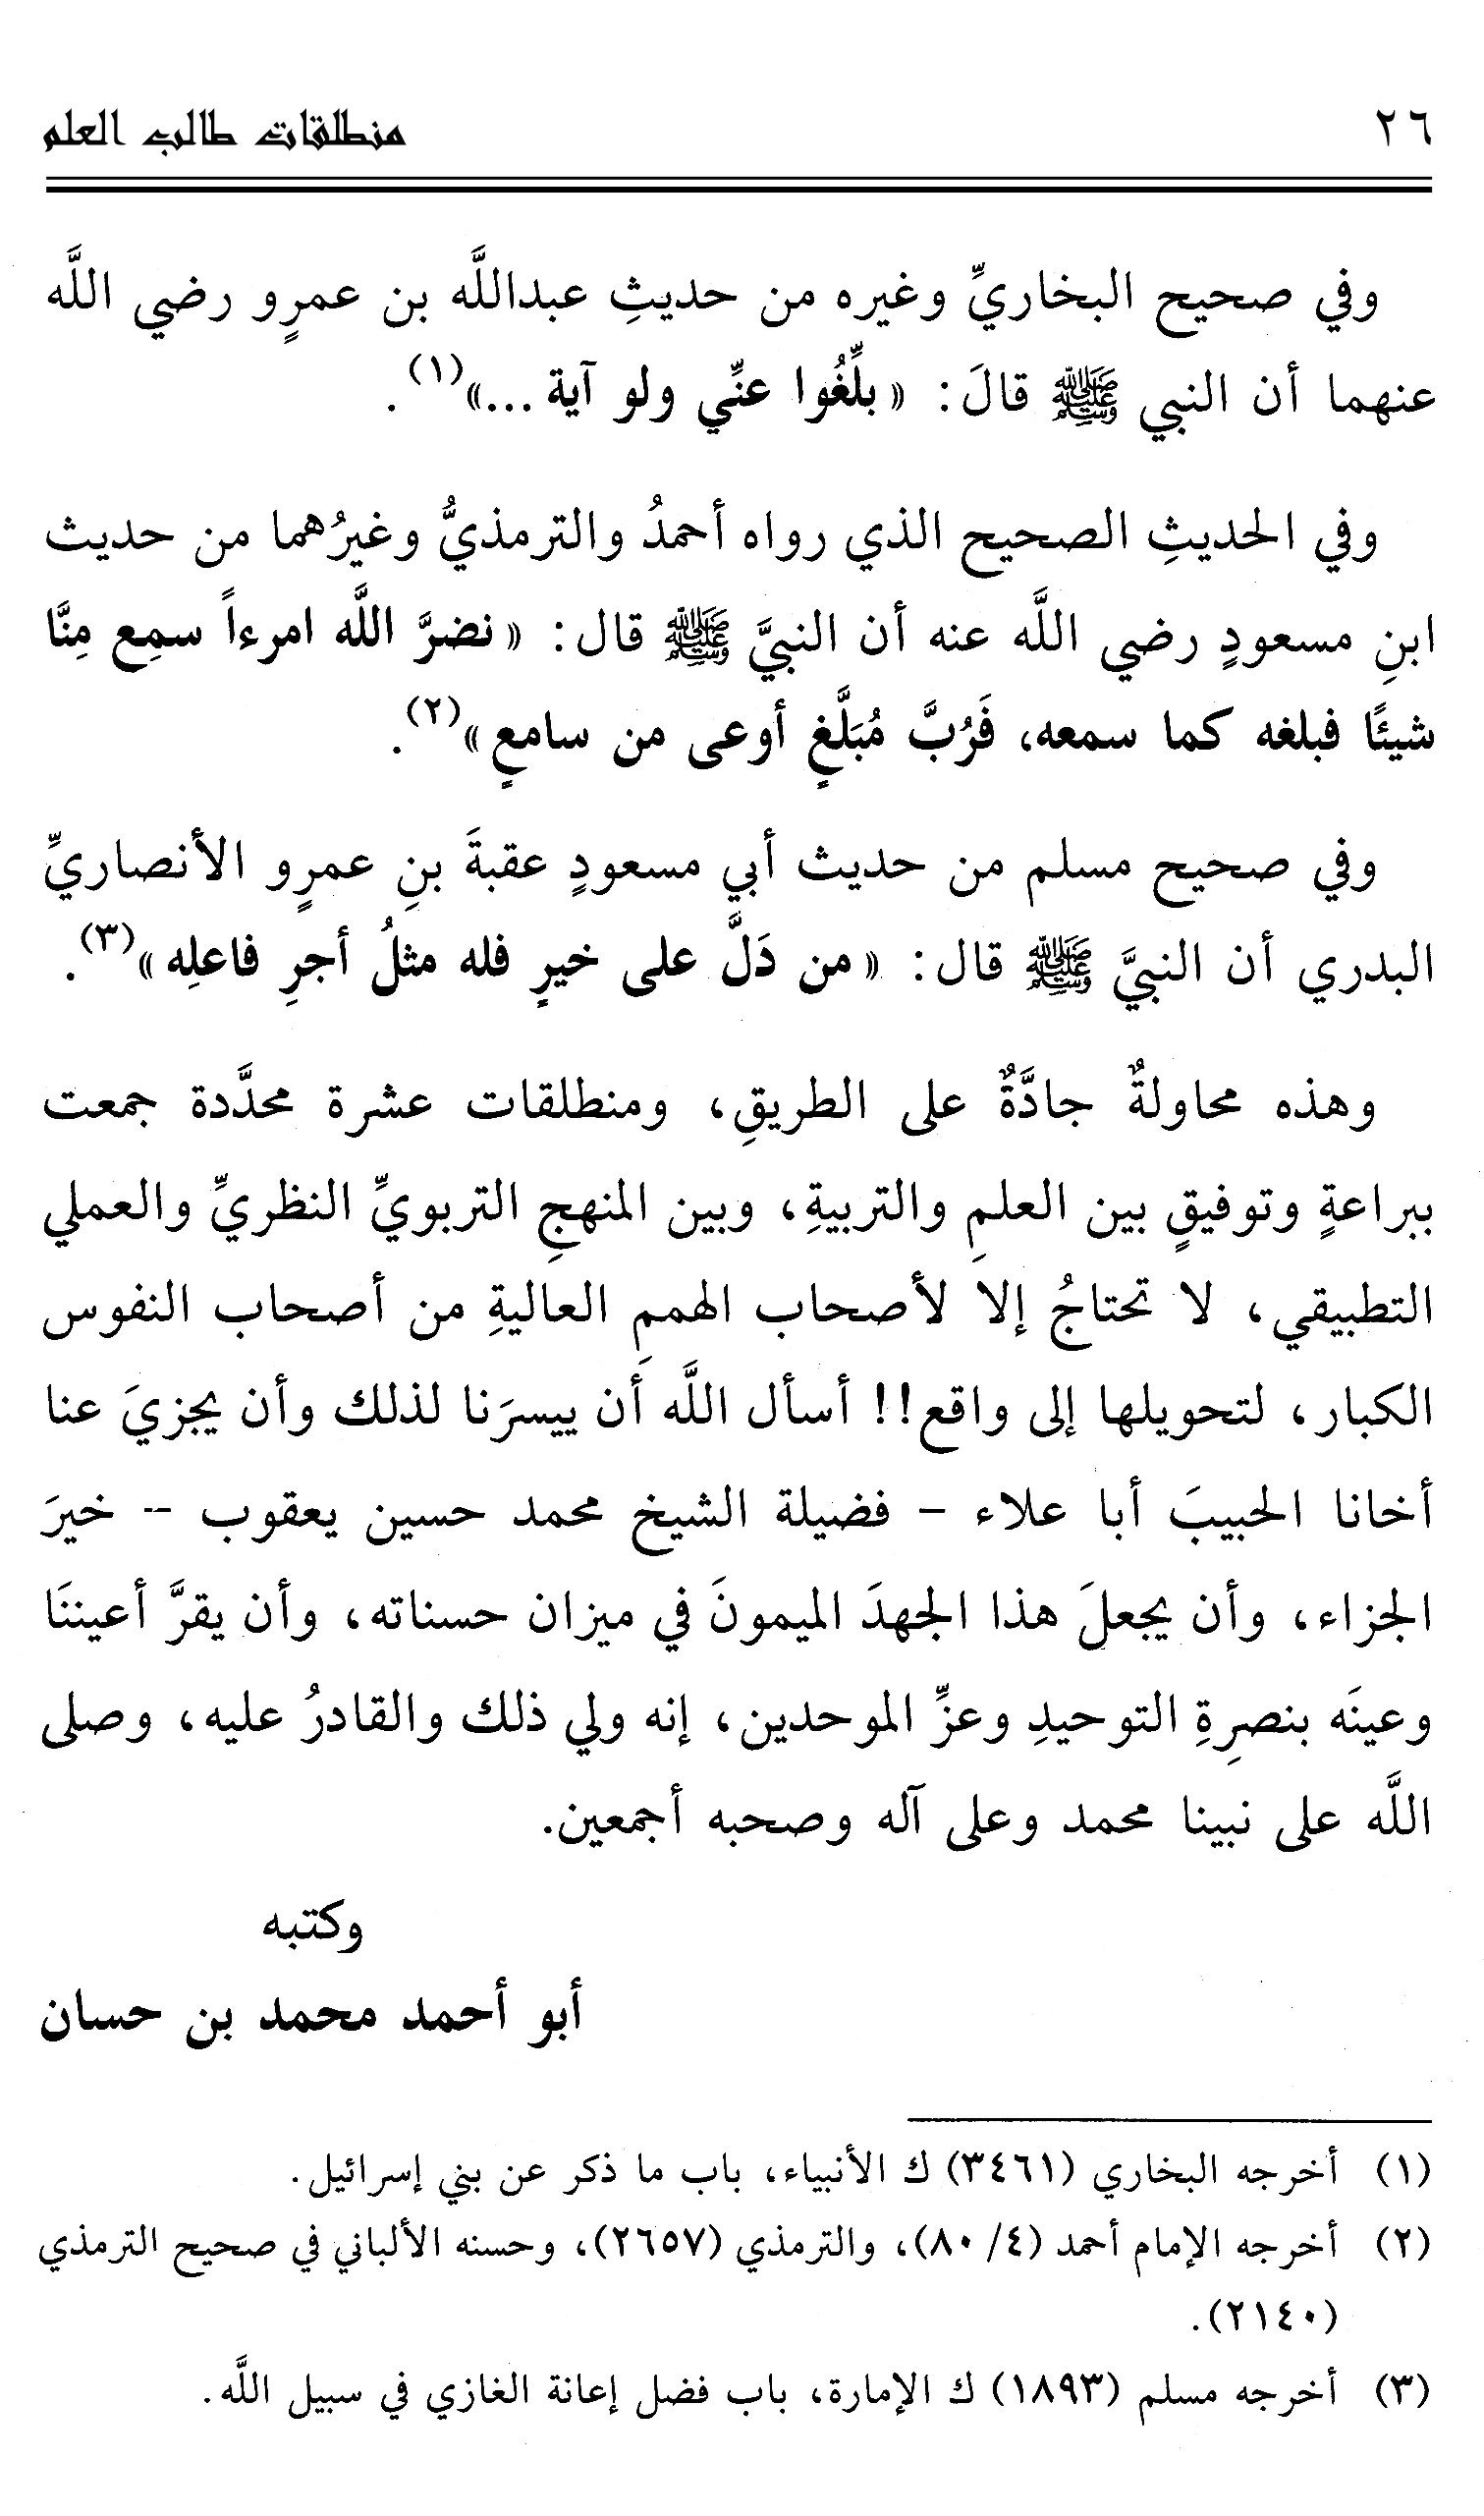 ٢٦
منطلقات طالب العلم
وفي صحيح البخاريِّ وغيره من حديثِ عبداللَّه بن عمرٍو رضي اللَّه
عنهما أن النبي ﷺ قالَ: «بلِّغُوا عنِّي ولو آية ...»(١).
وفي الحديثِ الصحيح الذي رواه أحمدُ والترمذيُّ وغيرُهما من حديث
ابنِ مسعودٍ رضي اللَّه عنه أن النبيَّ ﷺ قال: «نضرَّ اللَّه امرءاً سمِع مِنَّا
شيئًا فبلغه كما سمعه، فَرُبَّ مُبَلَّغٍ أوعى من سامعٍ»(٢).
وفي صحيح مسلم من حديث أبي مسعودٍ عقبةَ بنِ عمرٍو الأنصاريِّ
البدري أن النبيَّ ﷺ قال: «من دَلَّ على خيرٍ فله مثلُ أجرِ فاعلِه»(٣).
وهذه محاولةٌ جادَّةٌ على الطريقِ، ومنطلقات عشرة محدَّدة جمعت
ببراعةٍ وتوفيقٍ بين العلمِ والتربيةِ، وبين المنهجِ التربويِّ النظريِّ والعملي
التطبيقي، لا تحتاجُ إلا لأصحاب الهممِ العاليةِ من أصحاب النفوس
الكبار، لتحويلها إلى واقع!! أسأل اللَّه أَن ييسرَنا لذلك وأن يجزيَ عنا
أخانا الحبيبَ أبا علاء - فضيلة الشيخ محمد حسين يعقوب - خيرَ
الجزاء، وأن يجعلَ هذا الجهدَ الميمونَ في ميزان حسناته، وأن يقرَّ أعيننَا
وعينَه بنصرِةِ التوحيدِ وعزِّ الموحدين، إنه ولي ذلك والقادرُ عليه، وصلى
اللَّه على نبينا محمد وعلى آله وصحبه أجمعين.
وكتبه
أبو أحمد محمد بن حسان
(١) أخرجه البخاري (٣٤٦١) ك الأنبياء، باب ما ذكر عن بني إسرائيل.
(٢) أخرجه الإمام أحمد (٤/ ٨٠)، والترمذي (٢٦٥٧)، وحسنه الألباني في صحيح الترمذي
(٢١٤٠).
(٣) أخرجه مسلم (١٨٩٣) ك الإمارة، باب فضل إعانة الغازي في سبيل اللَّه.